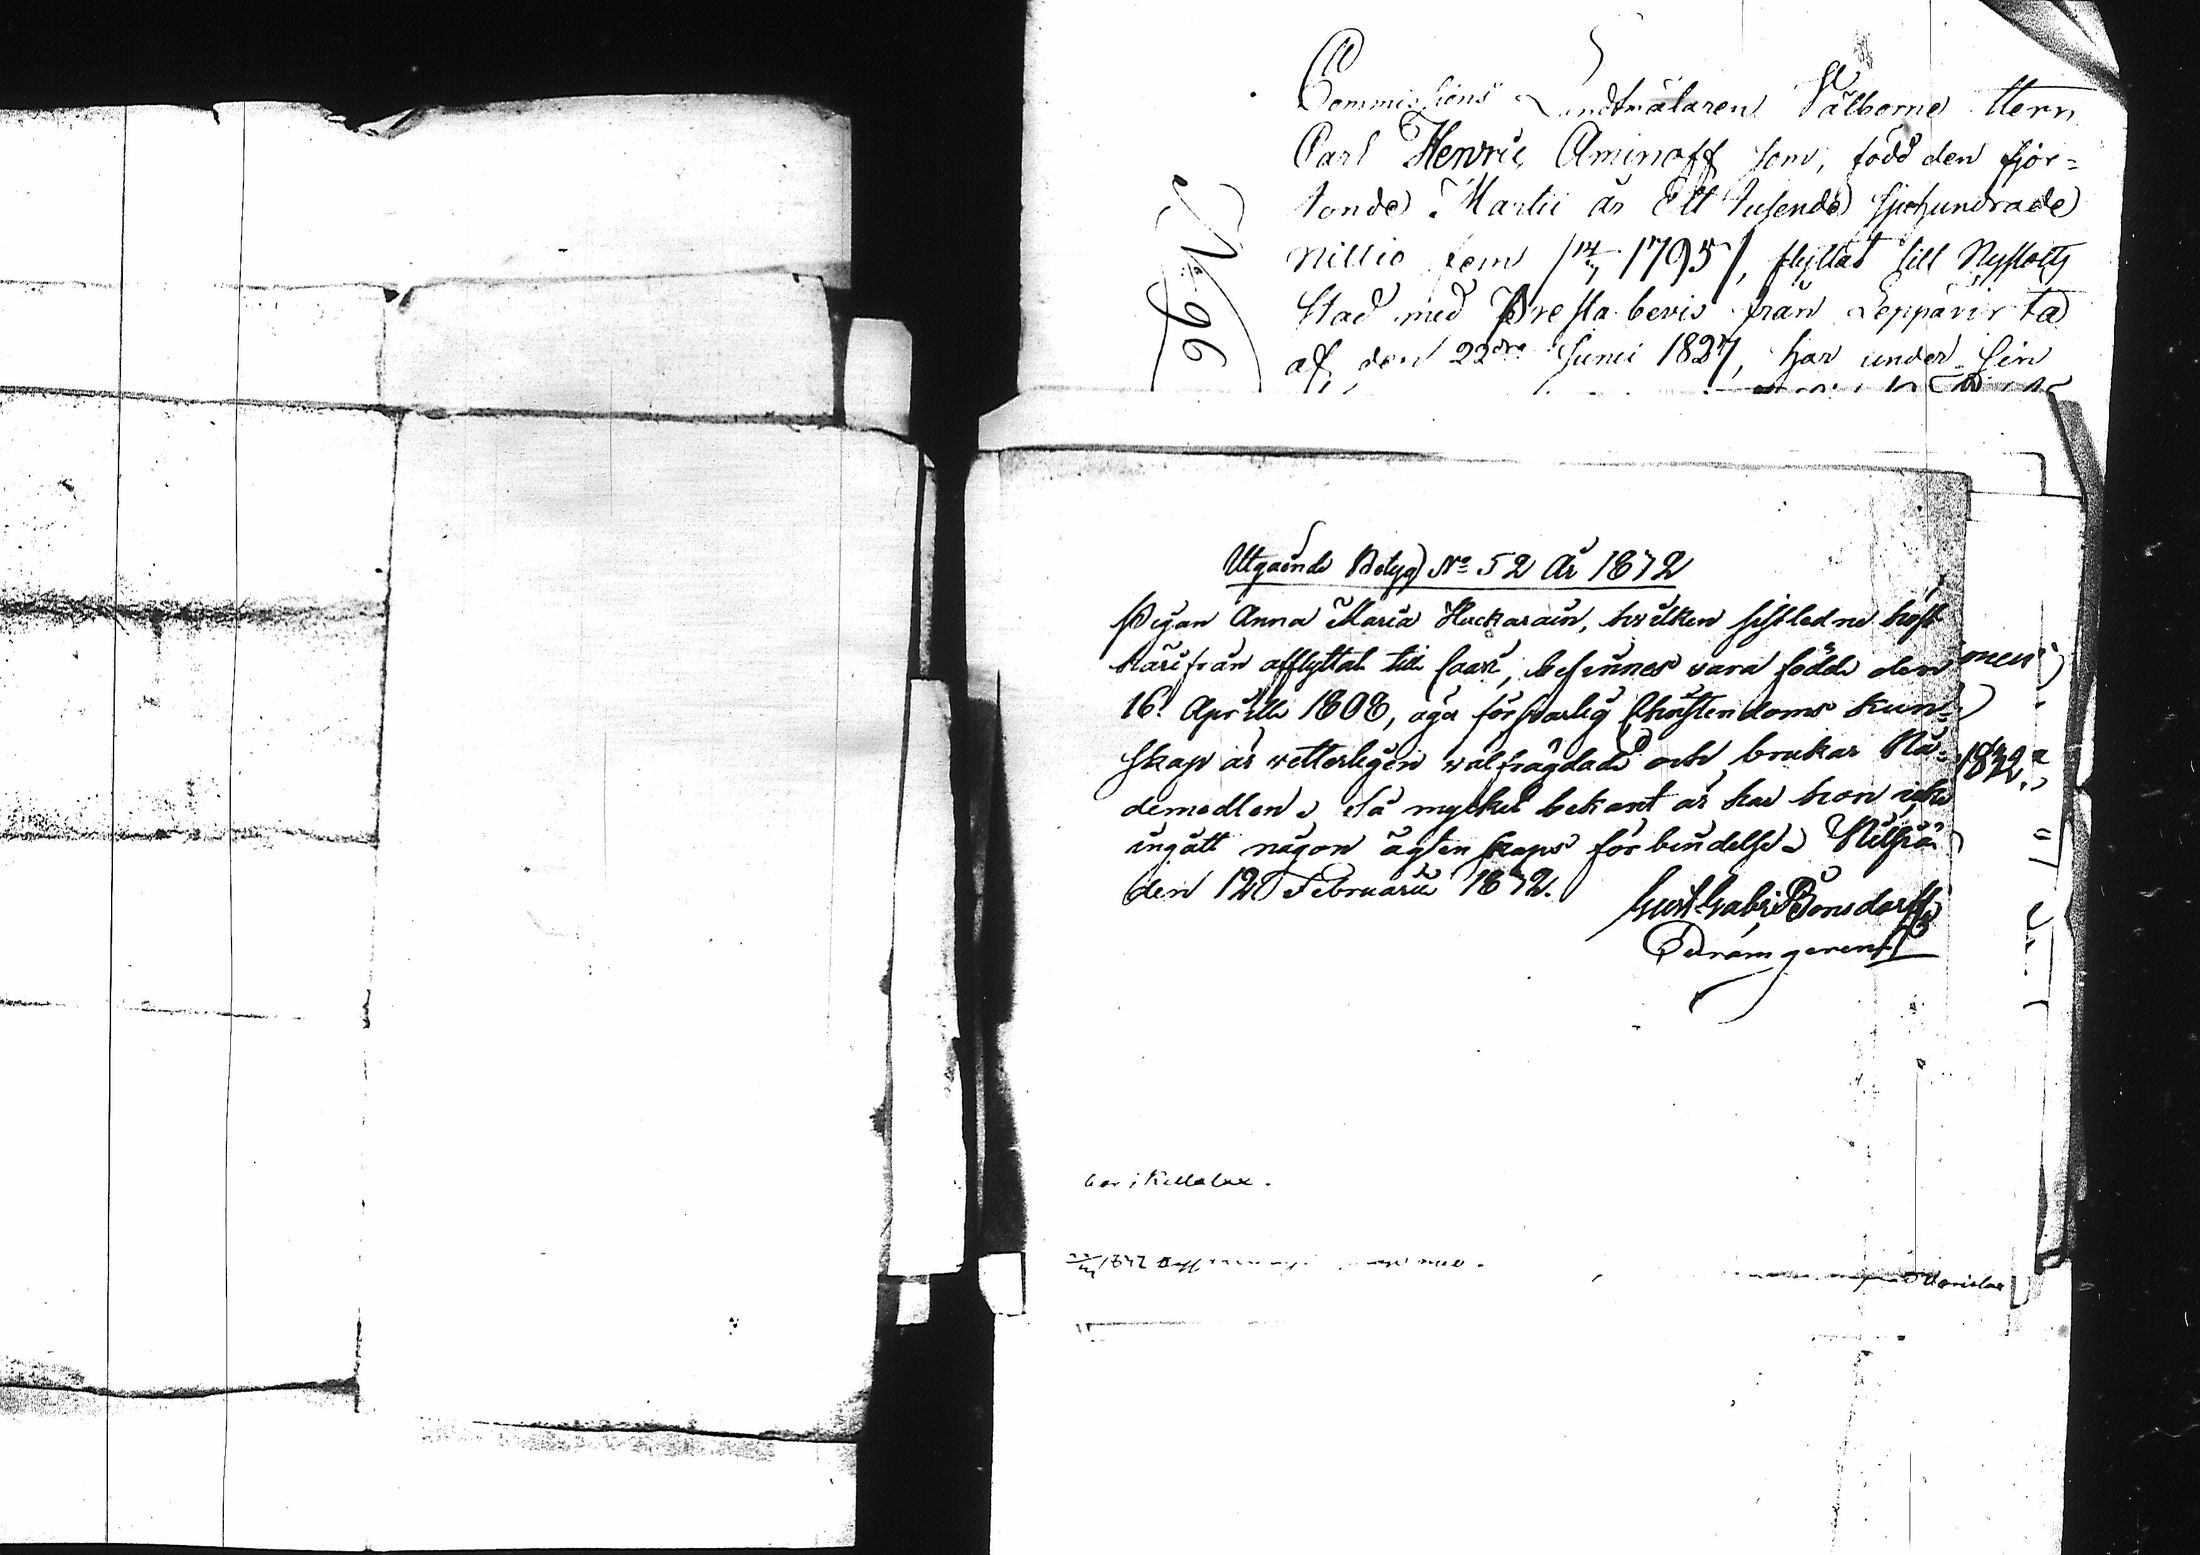 Commissions Landtmätaren Välborne Herr
Carl Henric Aminoff som, född den fjor-
tonde Martii år Ett tusende sjuhundrade
nittio fem /14/3 1795/, flyttat till Nyslotts
stad med Presta bevis från Leppävirta
af den 22dra Junii 1827, har under sin
96
Utgående Betyg No 52 År 1832
Pigan Anna Maria Huckarain, hvilken sistledne höst
härifrån afflyttat till Saari, befinnes vara födde den
16 Aprill 1808, äga försvarlig Christendoms kun-
skap är vetterligen välfrägdade och brukar Nå-
demedlen. Så mycket bekant är har hon icke
ingått någon ägtenskaps förbindelse. Nilsiä
den 12 Februarii 1832.
Gust. Gabr. Bonsdorff
men
1832.
bor i